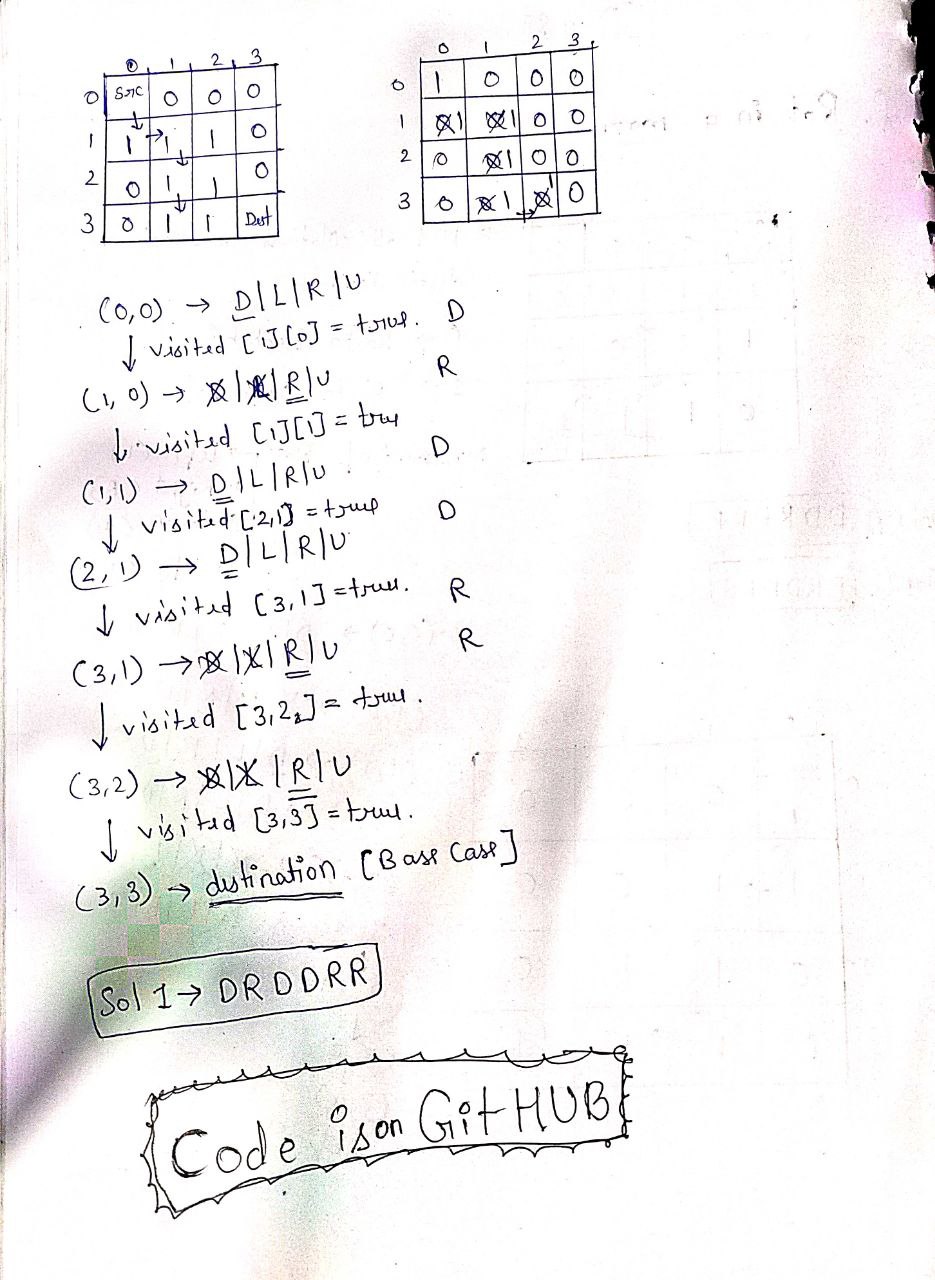 0 1 2 3
0 Src 0 0 0
1 1 → 1 1 0
2 0 1 1 0
3 0 1 1 Dest
0 1 2 3
0 1 0 0 0
1 0 1 0 1 0 0
2 0 0 1 0 0
3 0 0 1 0 1 0
(0,0) → D|L|R|U
↓ visited [1][0] = true. D
(1, 0) → D|L|R|U R
↓ visited [1][1] = tru
(1,1) → D|L|R|U D
↓ visited [2,1] = true D
(2,1) → D|L|R|U
↓ visited [3,1] = true. R
(3,1) → D|L|R|U R
↓ visited [3,2] = true.
(3,2) → D|L|R|U
↓ visited [3,3] = true.
(3,3) → distination [Base Case]
Sol 1 → DRDDRR
Code is on GitHUB